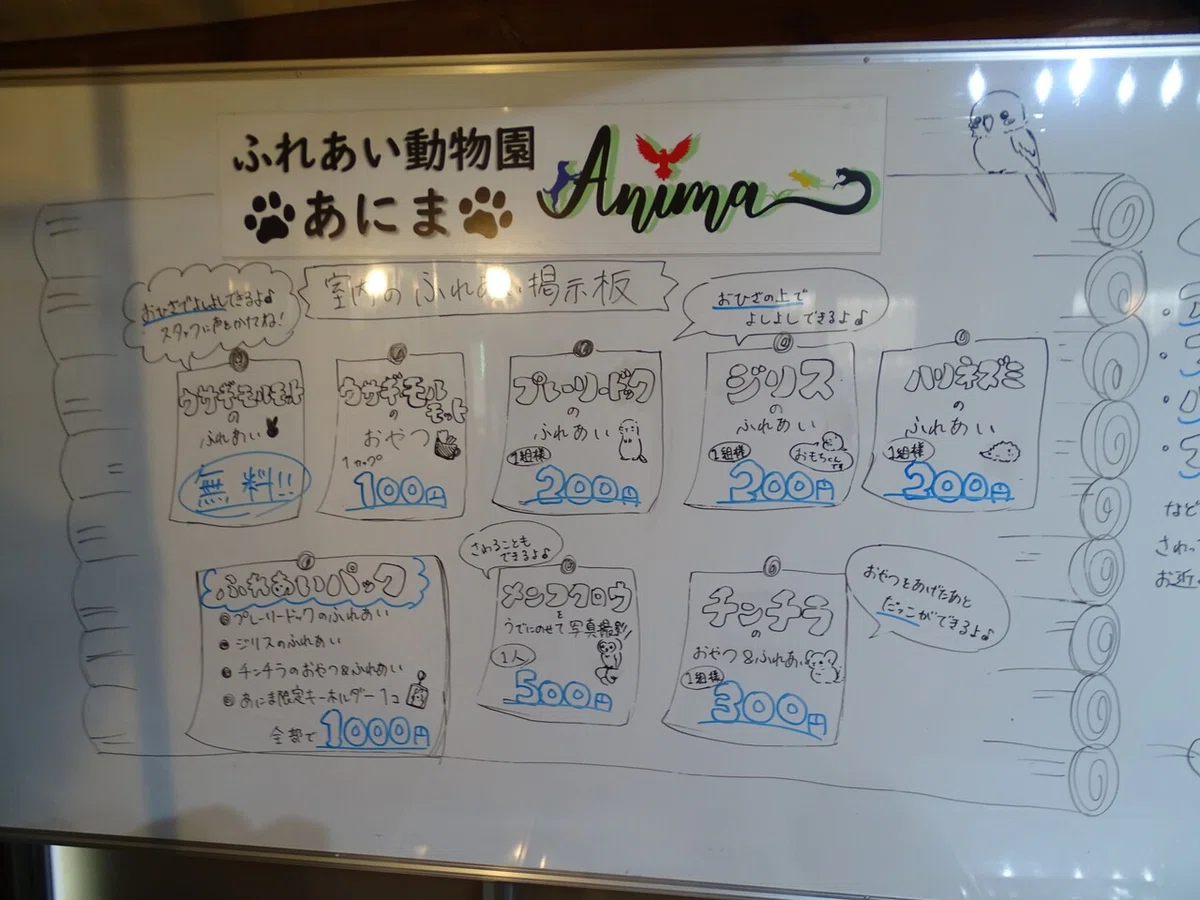 ふれあい動物園
あにま
Anima
室内のふれあい掲示板
おひざでよしよしできるよ♪
スタッフに声をかけてね!
おひざの上で
よしよしできるよ♪
ウサギモルモット
の
ふれあい
無料!!
ウサギモル
モット
の
おやつ
1カップ
100円
プレーリードッグ
の
ふれあい
1組様
200円
ジリス
の
ふれあい
1組様
おもちくん
です
200円
ハリネズミ
の
ふれあい
1組様
200円
ふれあいパック
プレーリードッグのふれあい
ジリスのふれあい
チンチラのおやつ&ふれあい
あにま限定キーホルダー1コ
全部で1000円
さわることも
できるよ♪
メンフクロウ
を
うでにのせて写真撮影!
1人
500円
チンチラ
の
おやつ&ふれあい
1組様
300円
おやつをあげたあと
だっこができるよ♪
など
さわっ
お近